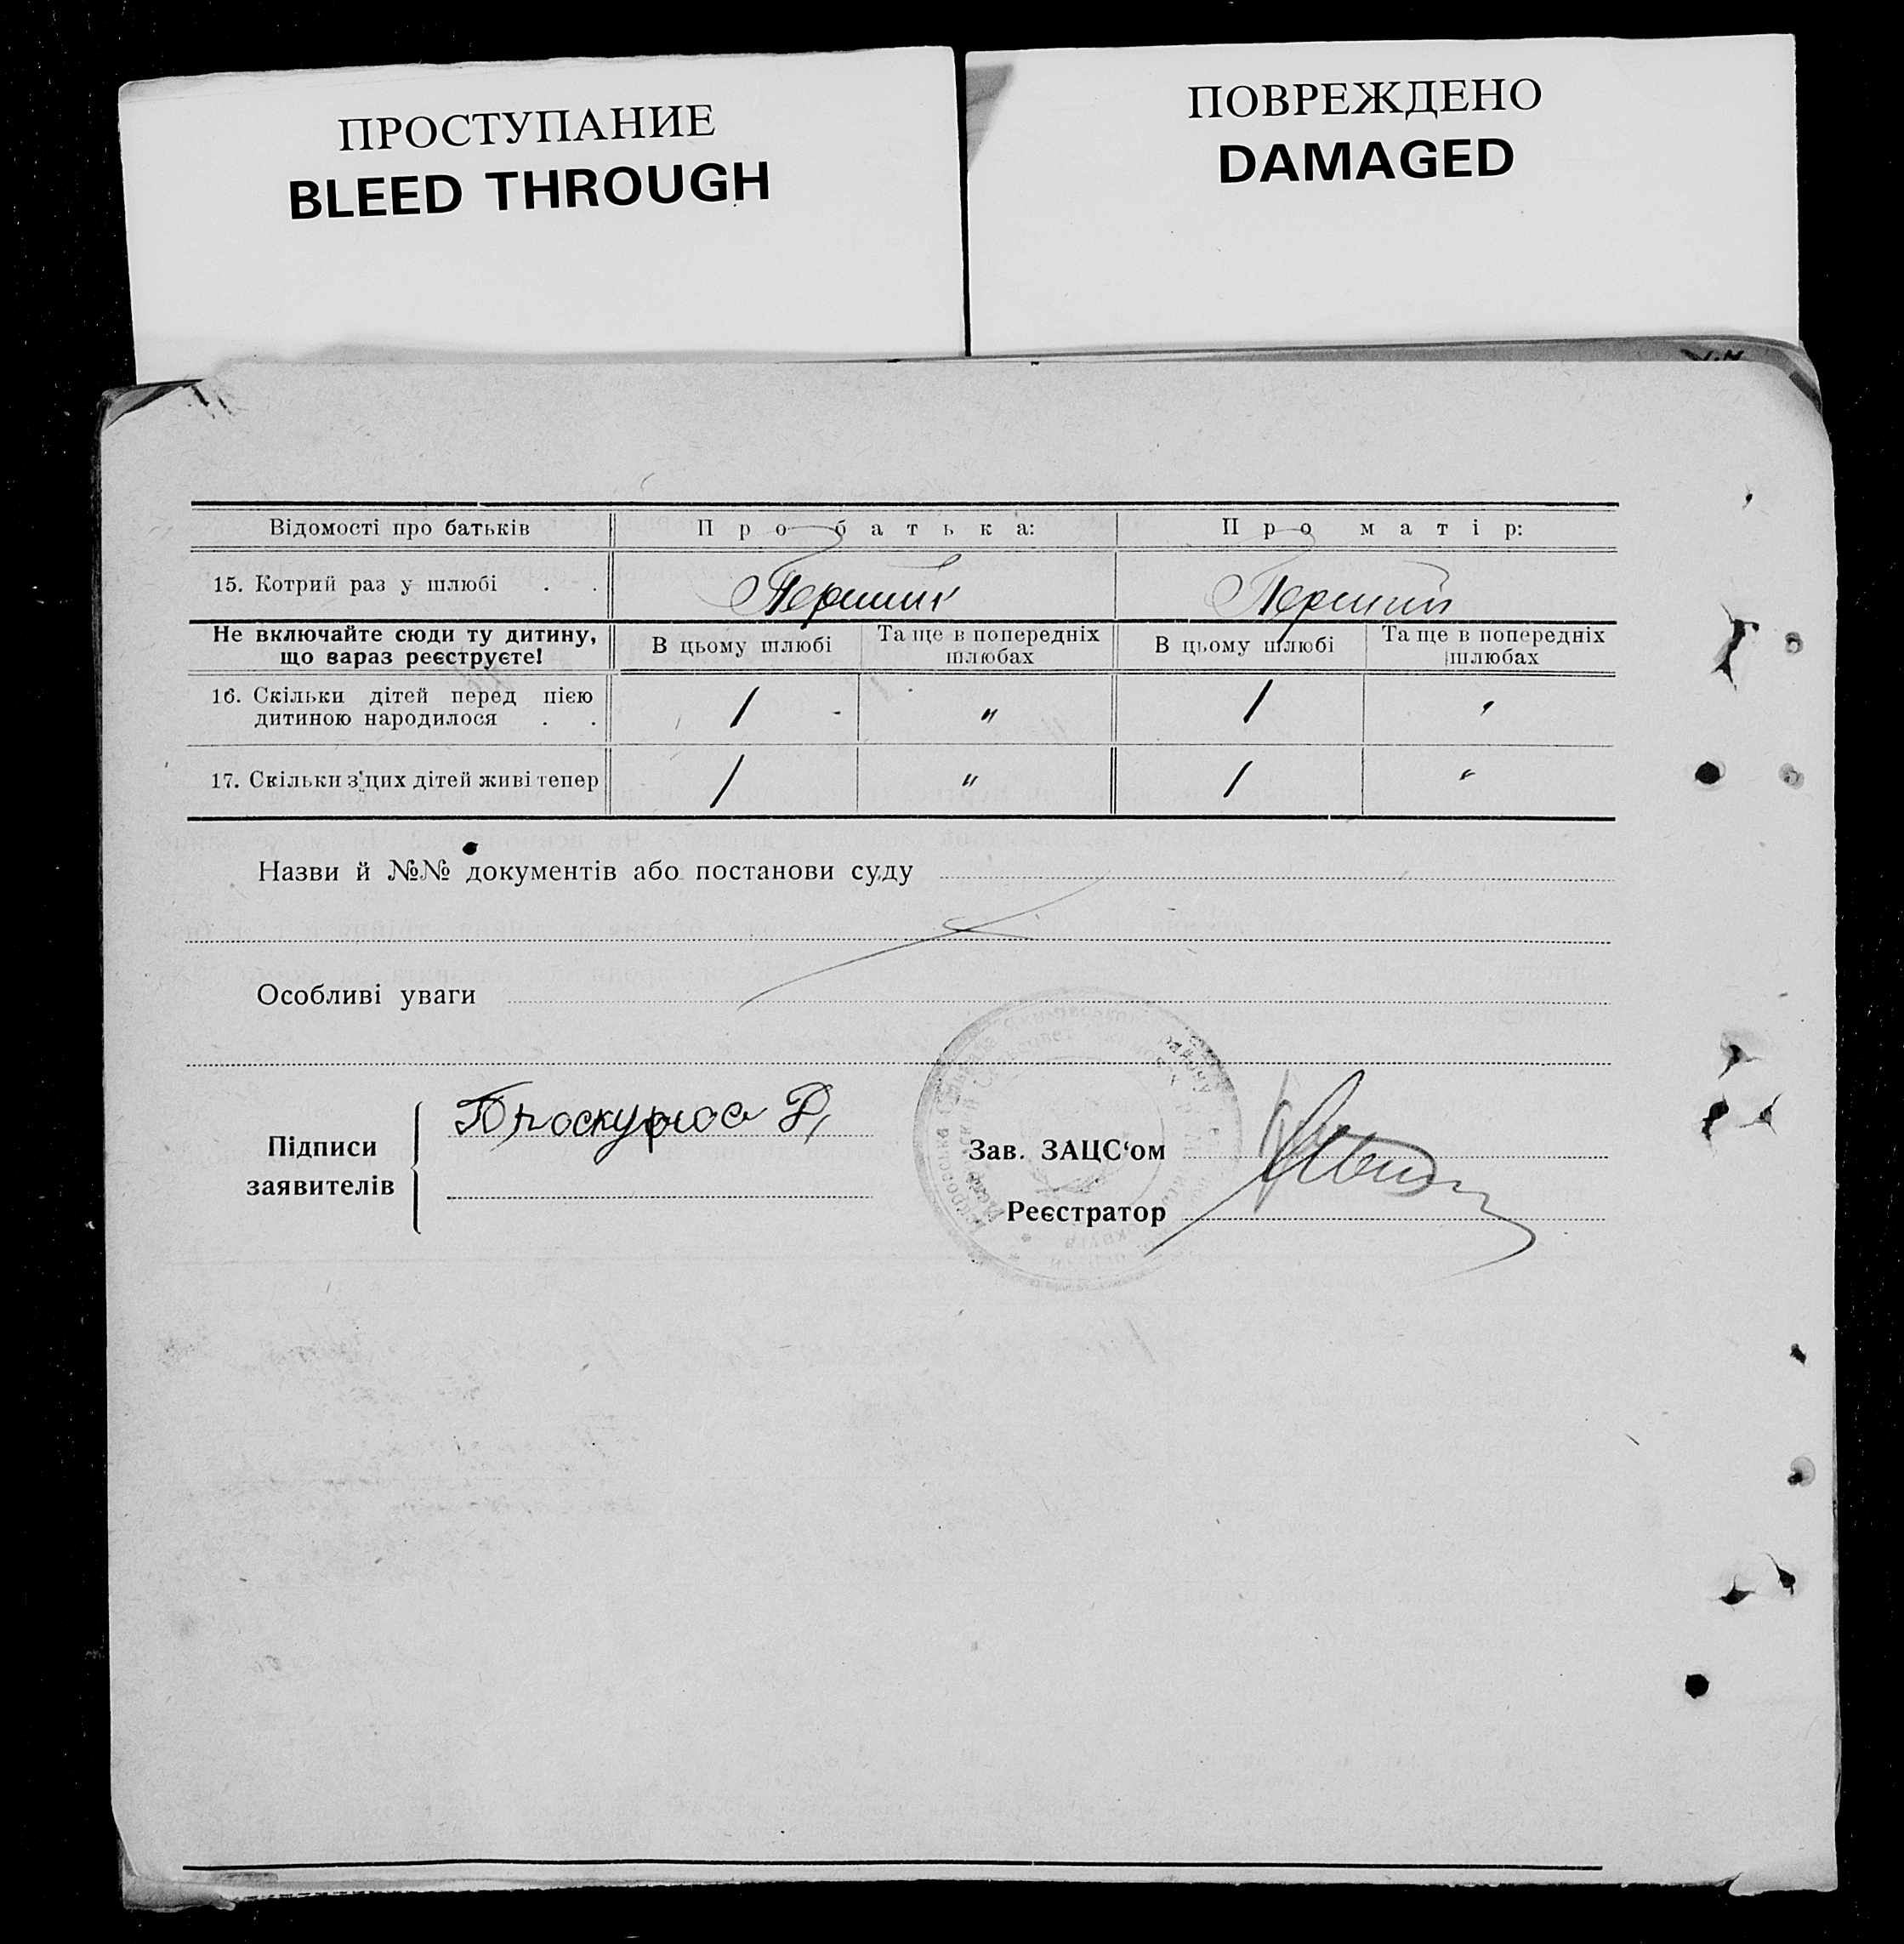 ПРОСТУПАНИЕ
BLEED THROUGH
ПОВРЕЖДЕНО
DAMAGED
Відомості про батьків Про батька: Про матір:
15. Котрий раз у шлюбі . . Перший Перший
Не включайте сюди ту дитину, що вараз реєструєте! В цьому шлюбі Та ще в попередніх шлюбах В цьому шлюбі Та ще в попередніх шлюбах
16. Скільки дітей перед цією дитиною народилося . . 1 " 1 "
17. Скільки з'цих дітей живі тепер 1 " 1 "
Назви й №№ документів або постанови суду
Особливі уваги
Підписи заявителів
Зав. ЗАЦС‘ом
Реєстратор